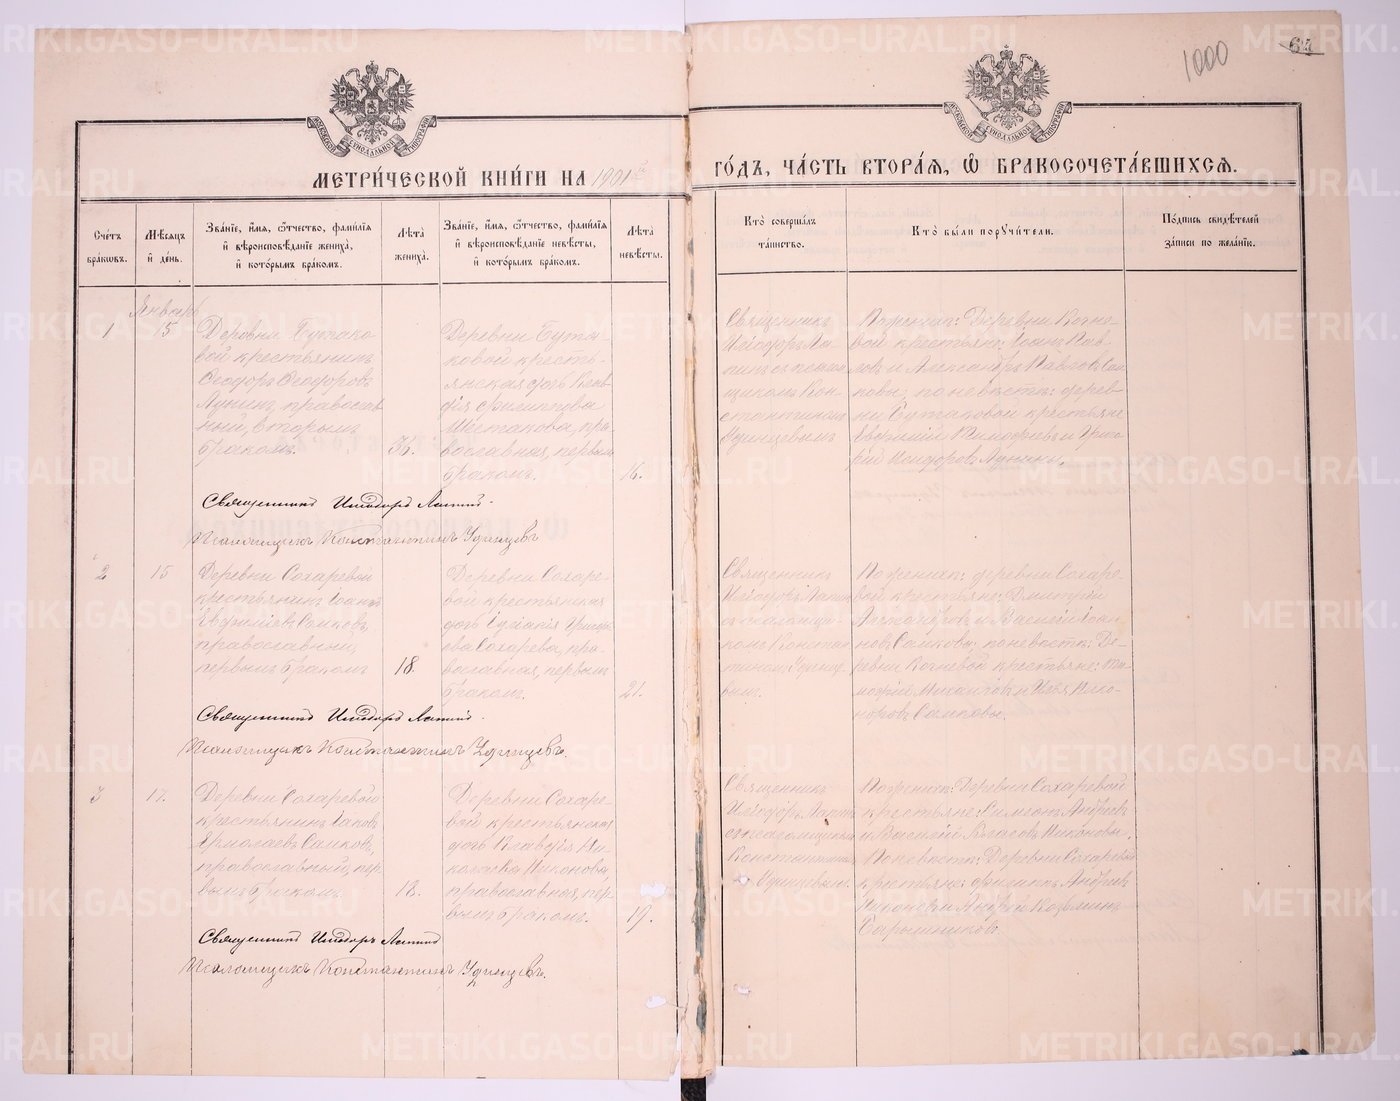 1000
64
МОСКОВСКОЙ СУНОДАЛЬНОЙ ТИПОГРАФІИ
МОСКОВСКОЙ СУНОДАЛЬНОЙ ТИПОГРАФІИ
МЕТРИ́ЧЕСКОЙ КНИ́ГИ НА 1901й
ГО́ДЪ, ЧА́СТЬ ВТОРА́Я, Ѡ҆ БРАКОСОЧЕТА́ВШИХСЯ.
Сче́тъ бра́ковъ.
Мѣ́сяцъ и҆ де́нь.
Зва́нїе, и҆́мя, ѻ҆́тчество, фами́лїя и҆ вѣроисповѣ́данїе жениха̀, и҆ кото́рымъ бра́комъ.
Лѣ́та жениха̀.
Зва́нїе, и҆́мя, ѻ҆́тчество, фами́лїя и҆ вѣроисповѣ́данїе невѣ́сты, и҆ кото́рымъ бра́комъ.
Лѣ́та невѣ́сты.
Кто̀ соверша́лъ та́инство.
Кто̀ бы́ли пору́чители.
По́дпись свидѣ́телей за́писи по жела́нїю.
Январь
1
5
Деревни Бутако-
вой крестьянинъ
Ѳеодоръ Ѳеодоровъ
Лунинъ, православ
ный, вторымъ
бракомъ.
36.
Деревни Бута-
ковой кресть-
янская дочь Клав-
дія Филиппова
Шестакова, пра-
вославная, первымъ
бракомъ.
16.
Священникъ
Исидоръ Ла-
пинъ съ псалом
щикомъ Кон-
стантиномъ
Удинцевымъ
По женихѣ: Деревни Кочне-
вой крестьяне: Іоаннъ Пав-
ловъ и Александръ Павловъ Саи
ковы; по невѣстѣ: дерев-
ни Бутаковой крестьяне
Евфимій Тимофеевъ и Григо-
рій Исидоровъ Лунины.
Священникъ Исидоръ Лапинъ
Псаломщикъ Константинъ Удинцевъ
2
15
Деревни Сохаревой
крестьянинъ Іоаннъ
Евфиміевъ Саиковъ,
православный,
первымъ бракомъ
18.
Деревни Сохаре-
вой крестьянская
дочь Григорь
ева Сохарева, пра-
вославная, первымъ
бракомъ.
21.
Священникъ
Исидоръ Лапинъ
съ псаломщи-
комъ Констан
тиномъ Удинце
вымъ.
По женихѣ: деревни Сохаре-
вой крестьяне: Дмитрій
и Василій Іоан-
новъ Саиковы; по невѣстѣ: Де-
ревни крестьяне: Ти-
мофей Михаиловъ и Илья Нико-
норовъ Саиковы.
Священникъ Исидоръ Лапинъ.
Псаломщикъ Константинъ Удинцевъ.
3
17.
Деревни Сохаревой
крестьянинъ Іаковъ
Ермолаевъ Саиковъ,
православный, пер
вымъ бракомъ.
18.
Деревни Сохаре-
вой крестьянская
дочь Клавдія Ни-
колаева Никонова,
православная, пер-
вымъ бракомъ.
19.
Священникъ
Исидоръ Лапинъ
съ псаломщикомъ
Константиномъ
Удинцевымъ.
По женихѣ: Деревни Сохаревой
крестьяне: Симеонъ Андреевъ
и Василій Власовъ Никоновы.
По невѣстѣ: Деревни Сохаревой
крестьяне: Филиппъ Андреевъ
Никоновъ и Андрей Козьминъ
Барышниковъ.
Священникъ Исидоръ Лапинъ
Псаломщикъ Константинъ Удинцевъ.
METRIKI.GASO-URAL.RU